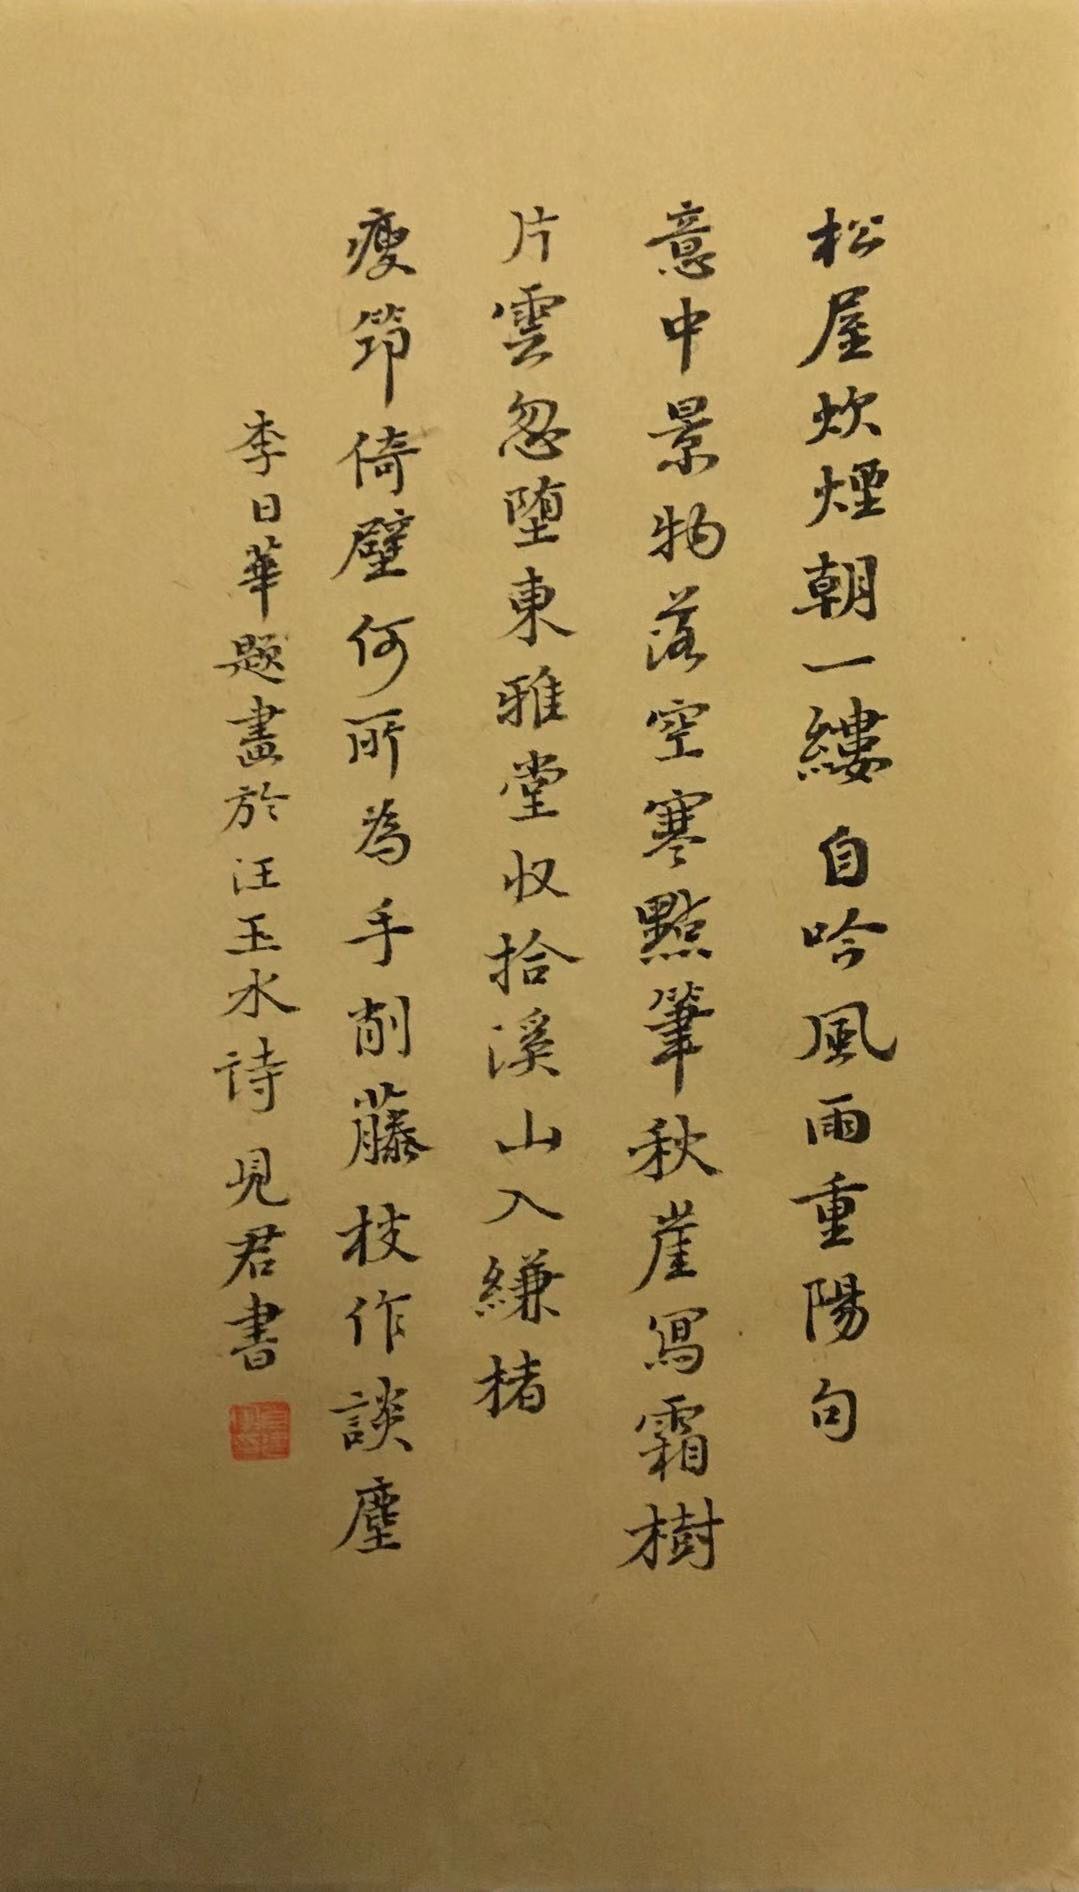 松屋炊煙朝一縷自吟風雨重陽句
意中景物落空寒點筆秋崖寫霜樹
片雲忽墮東雅堂收拾溪山入縑楮
瘦筇倚壁何所為手削藤枝作談麈
李日華題畫於汪玉水詩 見君書